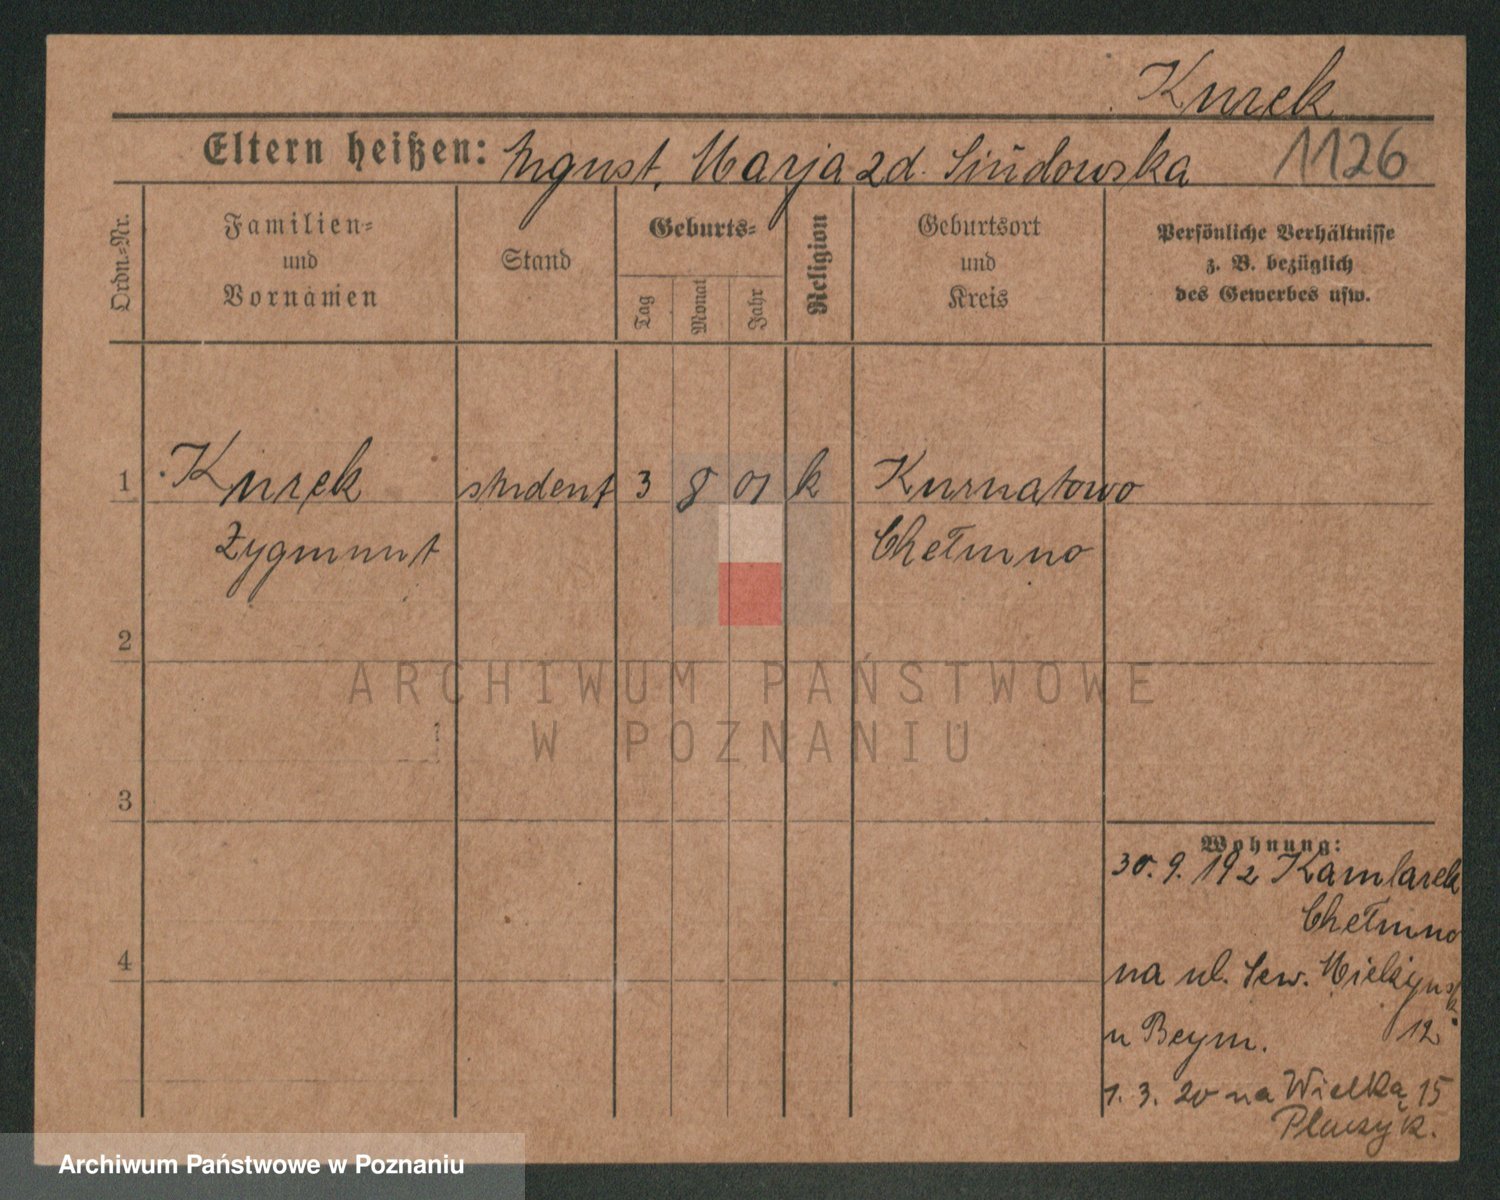 Kurek
Eltern heißen: August, Marja zd. Siudowska 1126
Ordn.-Nr.
Familien- und Vornamen
Stand
Geburts-
Tag
Monat
Jahr
Religion
Geburtsort und Kreis
Persönliche Verhältnisse
z. B. bezüglich
des Gewerbes usw.
1 Kurek student 3 8 01 k Kurnatowo
Zygmunt Chełmno
2
3
4
Wohnung:
30. 9. 192 Kamlarek
Chełmno
na ul. Sew. Mielżyńsk.
u Beym. 12
1. 3. 20 na Wielką 15
ARCHIWUM PAŃSTWOWE
W POZNANIU
Archiwum Państwowe w Poznaniu